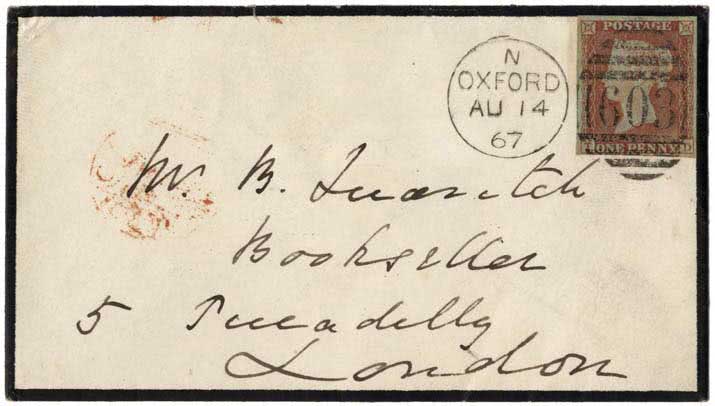 POSTAGE
N
OXFORD
AU 14
67
603
ONE PENNY
Mr. B. Quaritch
Bookseller
5 Piccadilly
London